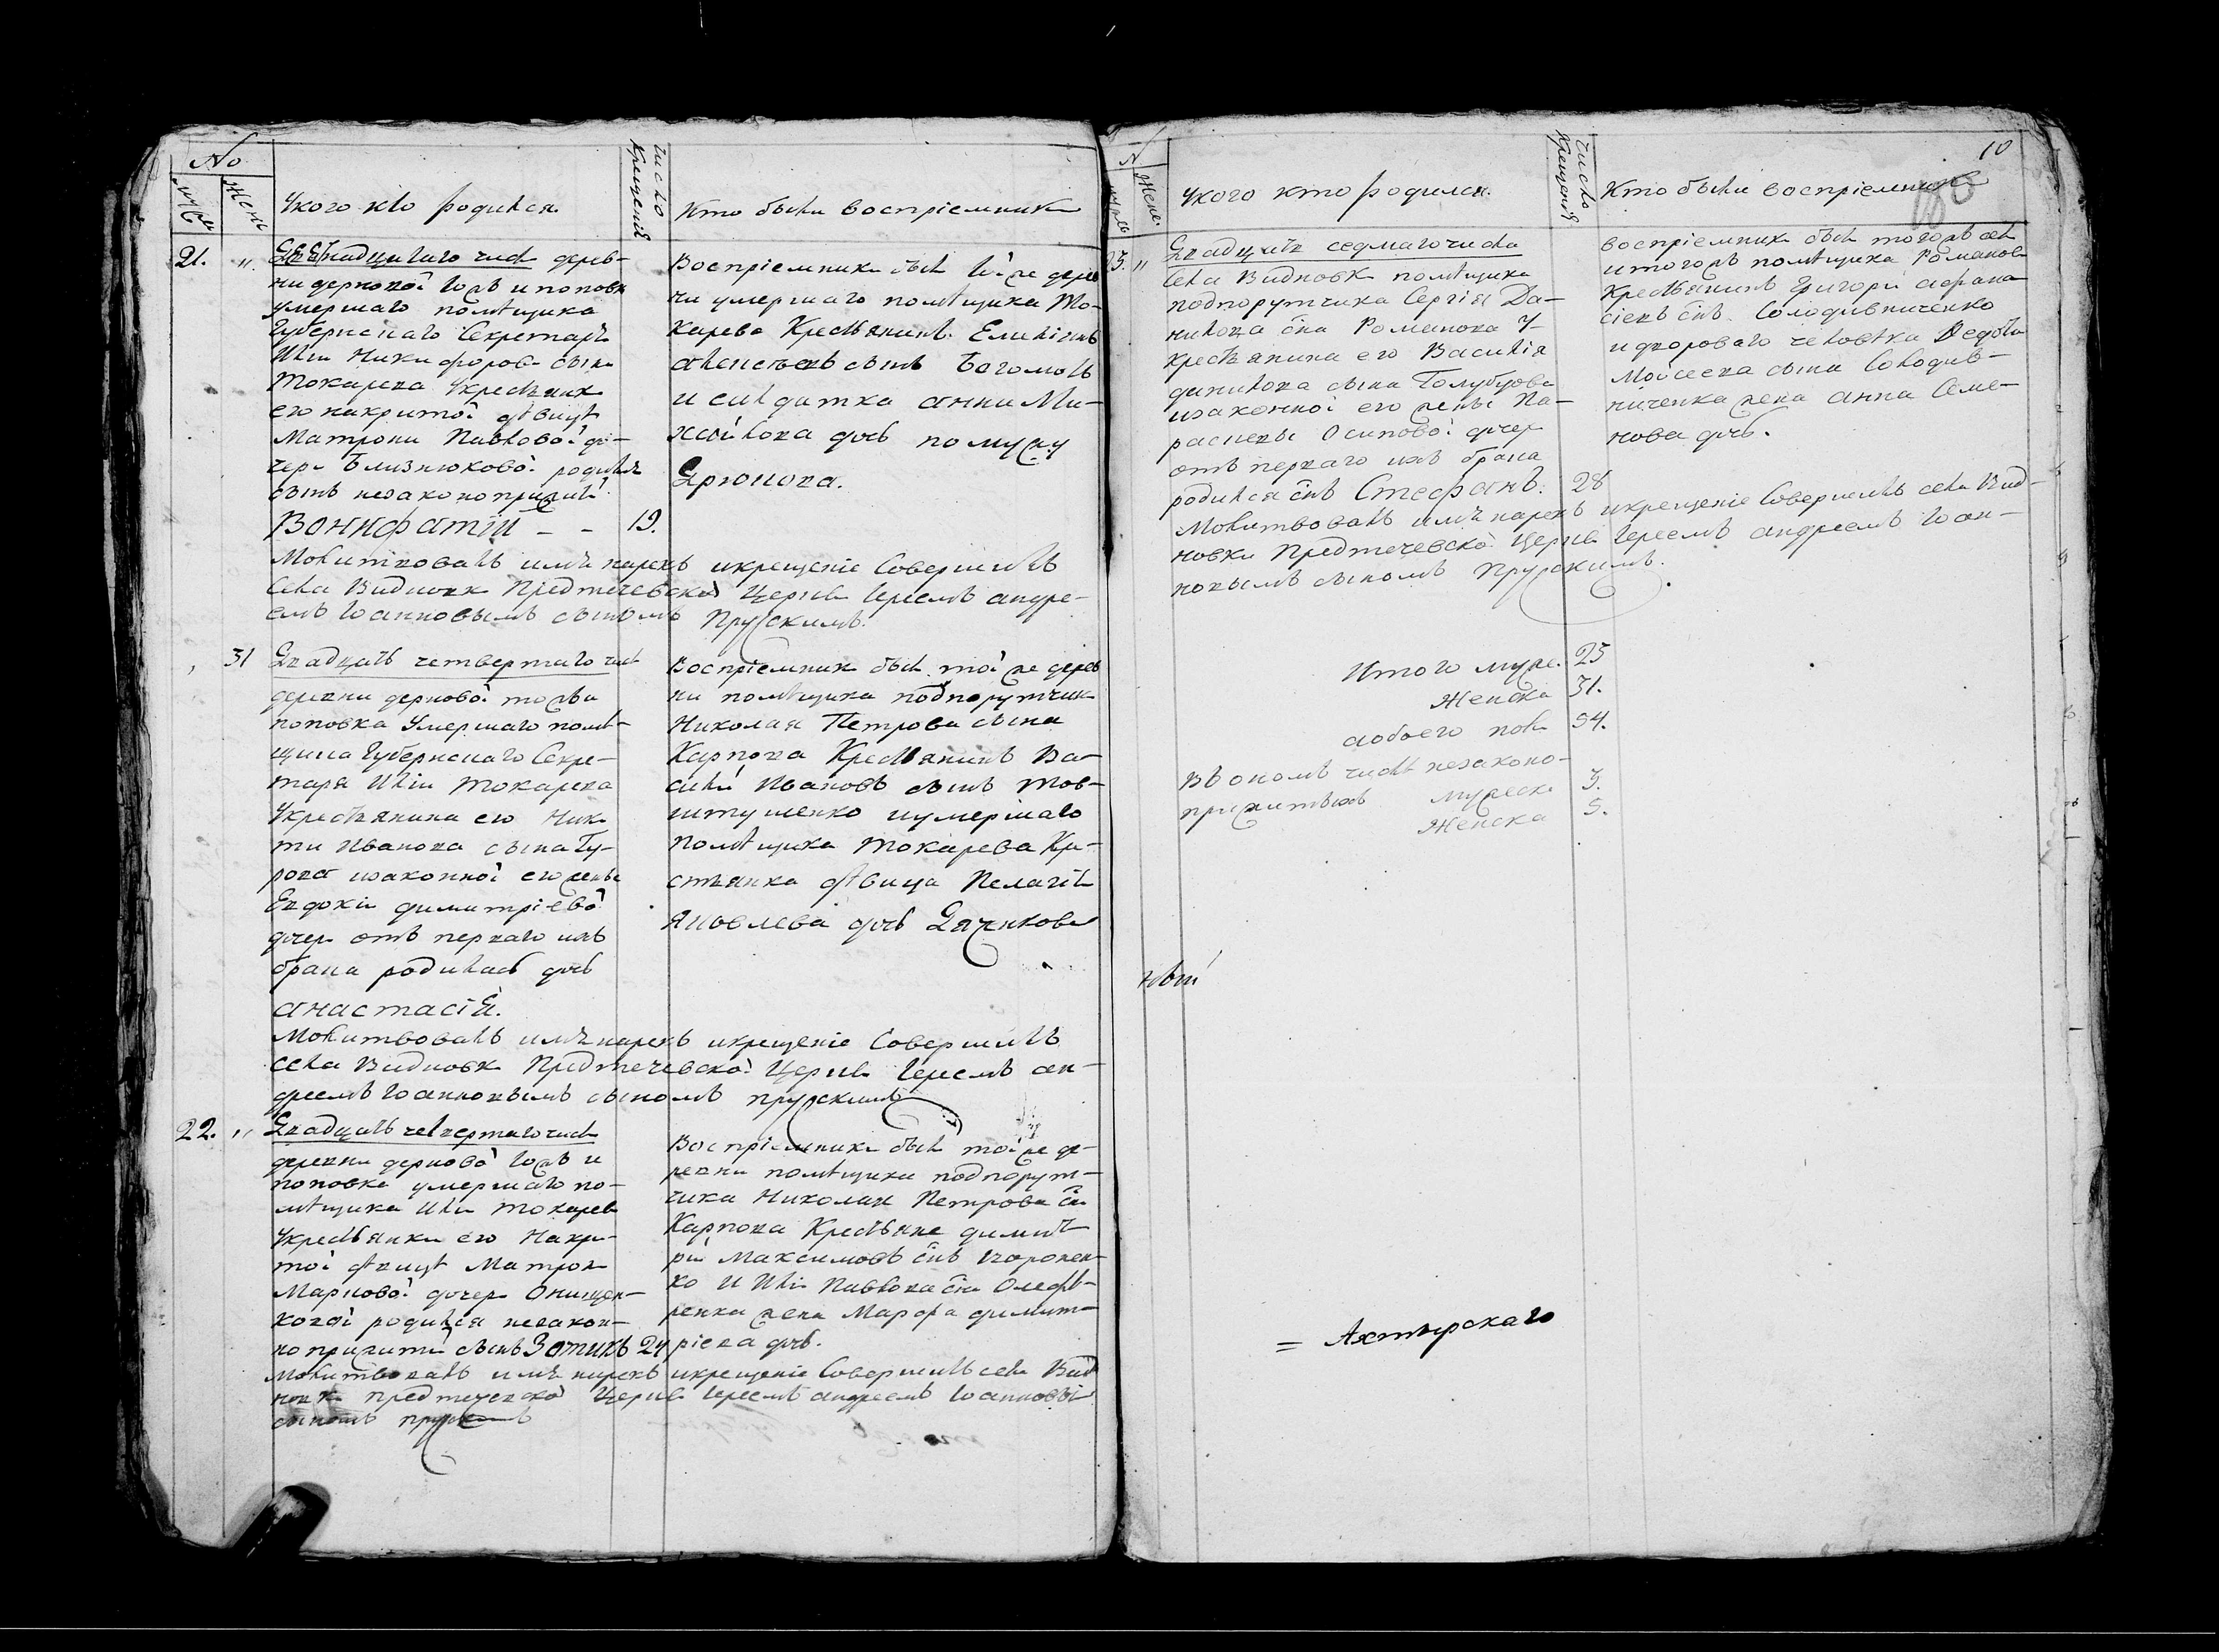 No
мужс
Женс
У кого кто родился
число
крещенія
Кто были воспріемники
21. "
Девятнадцатаго числ дерев-
ни дерновой тожъ и поповк
умершаго помѣщика
Губернскаго Секретаря
Ильи Никифорова сына
Токарева У крестьянки
его накритой дѣвицы
Матрони Павловой до-
чери Близнюковой родился
сынъ незаконоприжитй
Вонифатій - - 19.
Воспріемники был той же дерев
ни умершаго помѣщика То-
карева Крестьянинъ Емиліанъ
сынъ Богомолъ
и салдатка анна Ми-
хайлова дочь по мужу
Молитвовалъ имя нарекъ и крещеніе Совершилъ
Села Видновк Предтечевской Церкви Іереемъ андре-
емъ Іоанновымъ сыномъ Прускимъ.
31 Двадцать четвертаго числ
деревни дерновой тожъ и
поповка Умершаго помѣ-
щика Губернскаго Секре-
таря Ильи Токарева
У крестьянина его Ники-
ти Иванова сына Гу-
рова и законной его жены
Евдокіи димитріевой
дочери отъ перваго ихъ
брака родилась дочь
анастасія.
Воспріемник был той же дерев
ни помѣщика подпорутчик
Николая Петрова сына
Карпова Крестьянинъ Ва-
силій Ивановъ сынъ Тов-
и умершаго
помѣщика Токарева Кре-
стьянка дѣвица Пелагія
Яковлева дочь Дяченкова
Молитвовалъ имя нарекъ и крещеніе Совершилъ
села Видновк Предтечевской Церкви Іереемъ ан-
дреемъ Іоанновымъ сыномъ прускимъ
22. " Двадцать четвертаго числ
деревни дерновой тожъ и
поповка умершаго по-
мѣщика Ильи Токарева
У крестьянки его Накри-
той дѣвицы Матрон
Марковой дочери Онищен-
ковой родился незакон-
но прижитй сынъ Зотикъ 24
Воспріемники был той же де-
ревни помѣщика подпорут-
чика Николая Петрова сна
Карпова Крестьяне димит
рій Максимовъ снъ
ко и Ильи Павлова сна Олефѣ-
ренка жена Марфа димит-
ріева дочь.
Молитвовалъ имя нарекъ и крещеніе Совершилъ села Вид
новк предтечевской Церкви Іереемъ андреемъ Іоанновы
сыномъ прускимъ
10
№
мужс
Жене.
У кого кто родился.
число
крещенія
Кто были воспріемники
23. "
Двадцать седмаго числа
Села Видновк помѣщика
подпорутчика Сергія Да-
нилова сна Романова У
крестьянина его Василія
данилова сына Голубцова
и законной его жены Па-
раскевы Осиповой дочер
отъ перваго ихъ брака
родился снъ Стефанъ. 28
воспріемник был того жъ сел
и того жъ помѣщика Романова
Крестьянинъ Григорій афана-
сіевъ снъ Солодивниченко
и двороваго человѣка Ѳедота
Мойсеева сына Солодив-
ниченка жена анна Семе-
нова дочь.
Молитвовалъ имя нарекъ и крещеніе Совершилъ села Вид-
новки Предтечевской Церкви Іереемъ андреемъ Іоан-
новымъ сыномъ Прускимъ.
Итого муже. 23
Женска 31.
а обоего пола 54.
Въ ономъ числѣ незаконо-
прижитыхъ мужеска 3.
Женска 5.
= Ахтырскаго